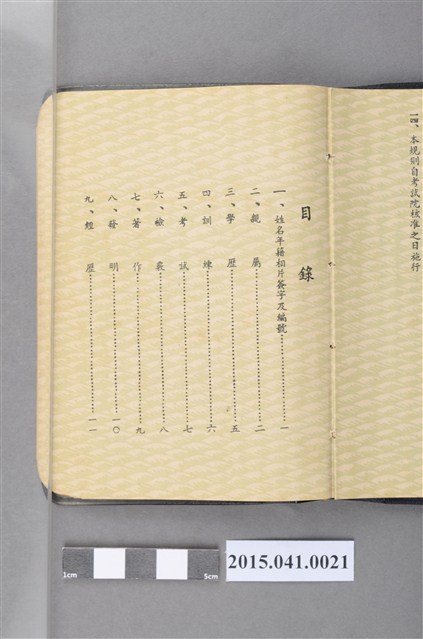 一四、本規則自考試院核准之日施行
目錄
一、姓名年籍相片簽字及編號……一
二、親屬……二
三、學歷……五
四、訓練……六
五、考試……七
六、檢覈……八
七、著作……九
八、發明……一〇
九、經歷……一一
1cm
5cm
2015.041.0021